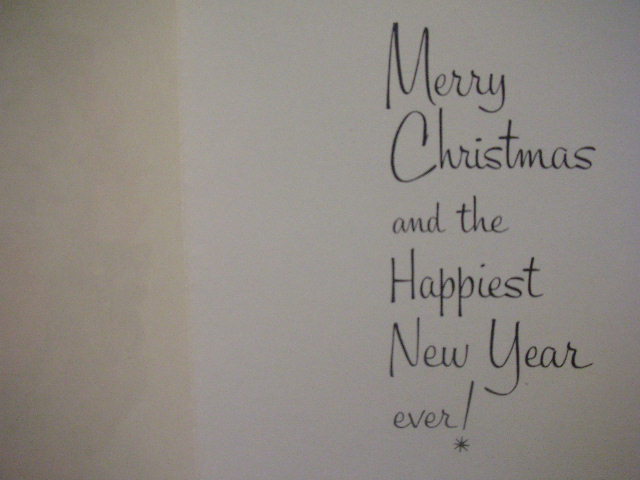 Merry
Christmas
and the
Happiest
New Year
ever!